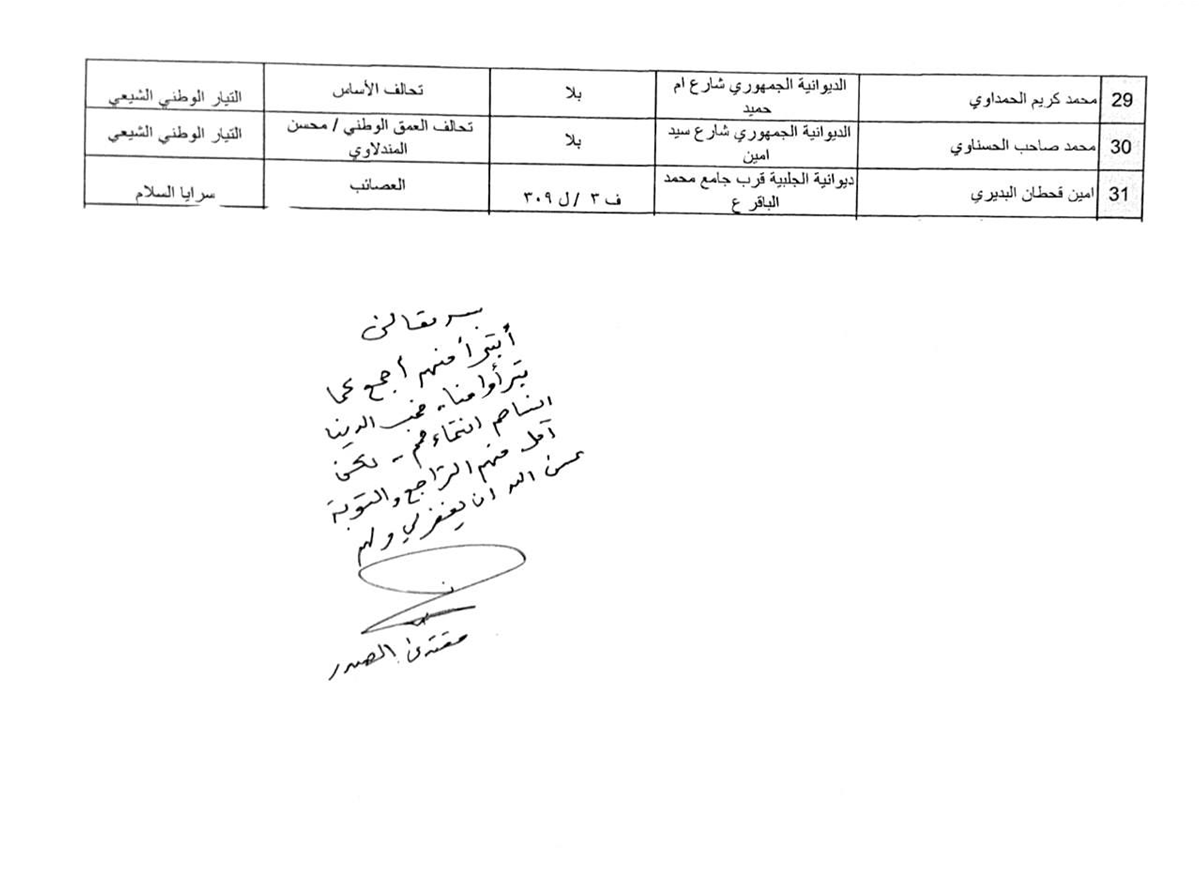 29 محمد كريم الحمداوي الديوانية الجمهوري شارع ام حميد بلا تحالف الأساس التيار الوطني الشيعي
30 محمد صاحب الحسناوي الديوانية الجمهوري شارع سيد امين بلا تحالف العمق الوطني / محسن المندلاوي التيار الوطني الشيعي
31 امين قحطان البديري ديوانية الجلبية قرب جامع محمد الباقر ع ف ٣ / ل ٣٠٩ العصائب سرايا السلام
بسمه تعالى
أتبرأ منهم أجمع كما
تبرأوا منا.. فحب الدنيا
أنساهم انتماءهم.. لكن
آمل منهم التراجع والتوبة
عسى الله ان يغفر لي ولهم
مقتدى الصدر